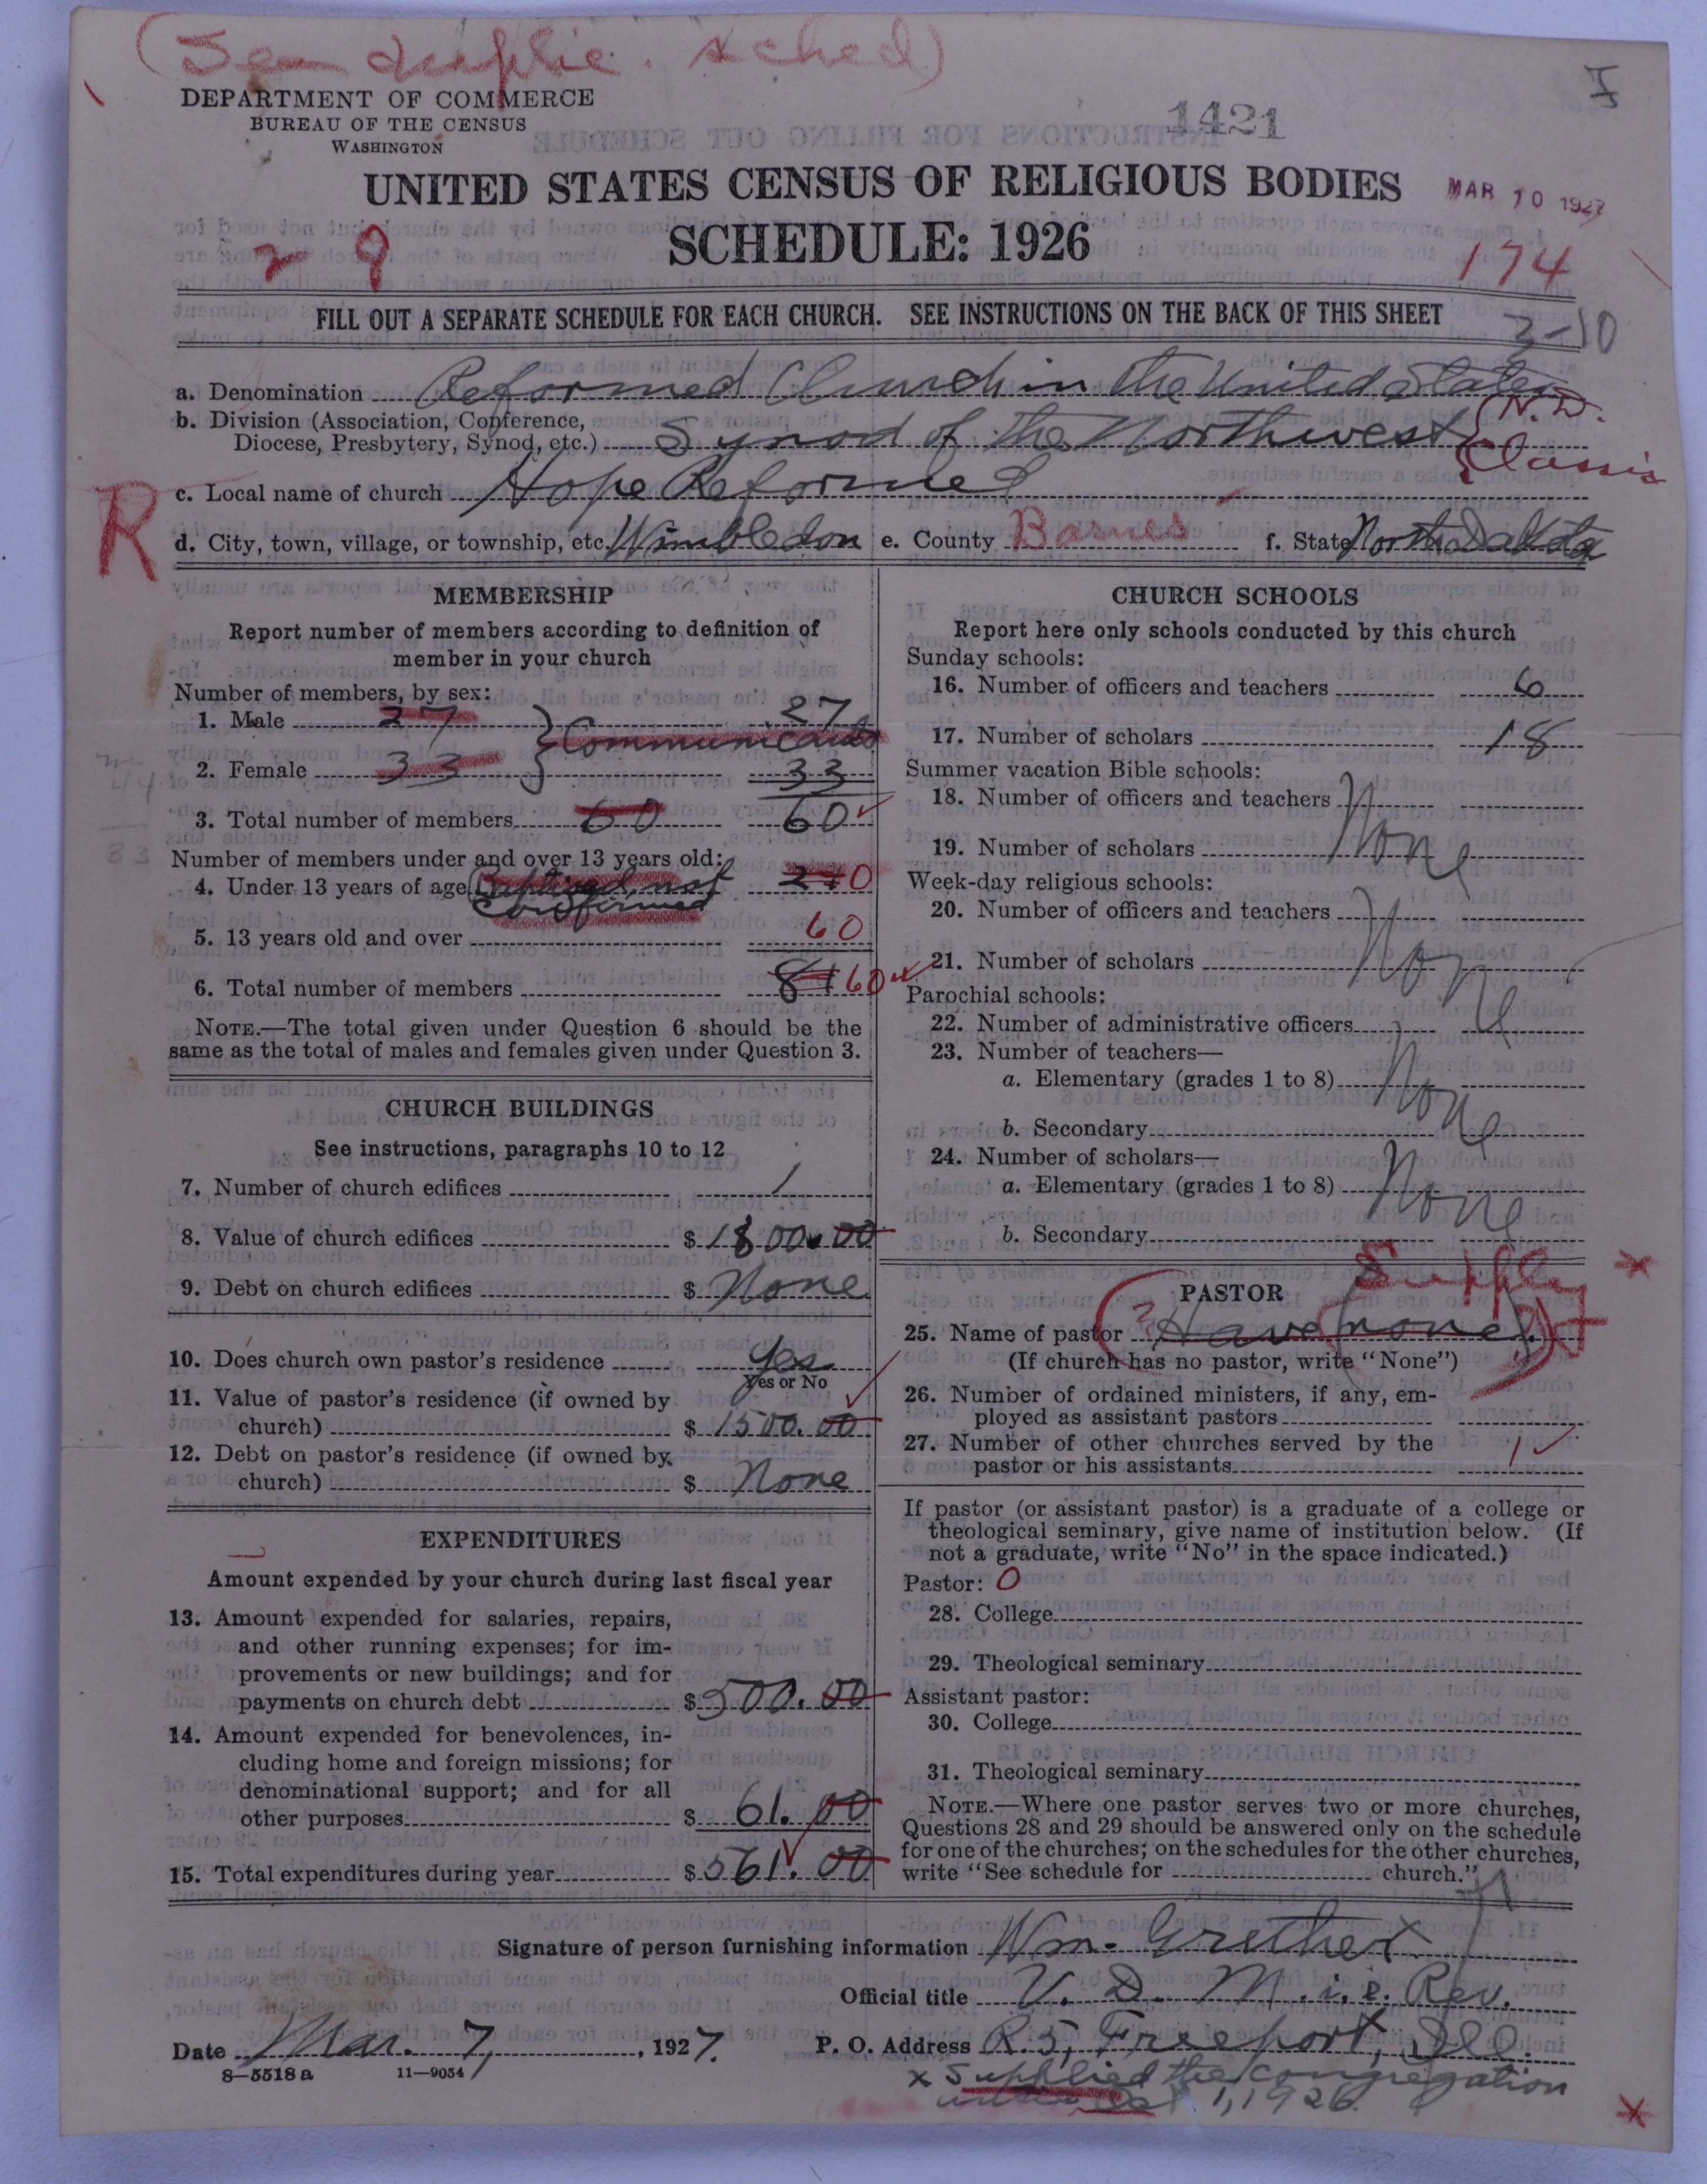 (Sem duplic. sched)
I
DEPARTMENT OF COMMERCE
BUREAU OF THE CENSUS
WASHINGTON
1421
UNITED STATES CENSUS OF RELIGIOUS BODIES
MAR 10 1927
2 9
SCHEDULE: 1926
174
FILL OUT A SEPARATE SCHEDULE FOR EACH CHURCH. SEE INSTRUCTIONS ON THE BACK OF THIS SHEET
3-10
a. Denomination Reformed Church in the United States
b. Division (Association, Conference,
Diocese, Presbytery, Synod, etc.) Synod of the Northwest (N.D. Classis
c. Local name of church Hope Reformed
R
d. City, town, village, or township, etc. Wimbledon e. County Barnes f. State North Dakota
MEMBERSHIP
Report number of members according to definition of
member in your church
Number of members, by sex:
1. Male 27 } Communicants 27
2. Female 33 33
3. Total number of members 60 60
Number of members under and over 13 years old:
4. Under 13 years of age (Baptized, not confirmed 21 0
5. 13 years old and over 60
6. Total number of members 81 60
NOTE.—The total given under Question 6 should be the
same as the total of males and females given under Question 3.
CHURCH BUILDINGS
See instructions, paragraphs 10 to 12
7. Number of church edifices 1
8. Value of church edifices $ 1800.00
9. Debt on church edifices $ None
10. Does church own pastor's residence Yes
Yes or No
11. Value of pastor's residence (if owned by
church) $ 1500.00
12. Debt on pastor's residence (if owned by
church) $ None
EXPENDITURES
Amount expended by your church during last fiscal year
13. Amount expended for salaries, repairs,
and other running expenses; for im-
provements or new buildings; and for
payments on church debt $ 500.00
14. Amount expended for benevolences, in-
cluding home and foreign missions; for
denominational support; and for all
other purposes $ 61.00
15. Total expenditures during year $ 561.00
CHURCH SCHOOLS
Report here only schools conducted by this church
Sunday schools:
16. Number of officers and teachers 6
17. Number of scholars 18
Summer vacation Bible schools:
18. Number of officers and teachers None
19. Number of scholars
Week-day religious schools:
20. Number of officers and teachers None
21. Number of scholars
Parochial schools:
22. Number of administrative officers
23. Number of teachers—
a. Elementary (grades 1 to 8) None
b. Secondary
24. Number of scholars—
a. Elementary (grades 1 to 8) None
b. Secondary
Supply
PASTOR
25. Name of pastor ? Have none
(If church has no pastor, write "None")
26. Number of ordained ministers, if any, em-
ployed as assistant pastors
27. Number of other churches served by the
pastor or his assistants 1
If pastor (or assistant pastor) is a graduate of a college or
theological seminary, give name of institution below. (If
not a graduate, write "No" in the space indicated.)
Pastor: 0
28. College
29. Theological seminary
Assistant pastor:
30. College
31. Theological seminary
NOTE.—Where one pastor serves two or more churches,
Questions 28 and 29 should be answered only on the schedule
for one of the churches; on the schedules for the other churches,
write "See schedule for church."
Signature of person furnishing information Wm. Grether
Official title V. D. M. i. e. Rev.
Date Mar. 7, 1927. P. O. Address R. 5, Freeport, Ill.
8—5518 a 11—9054
x Supplied the congregation
until Oct 1, 1926.